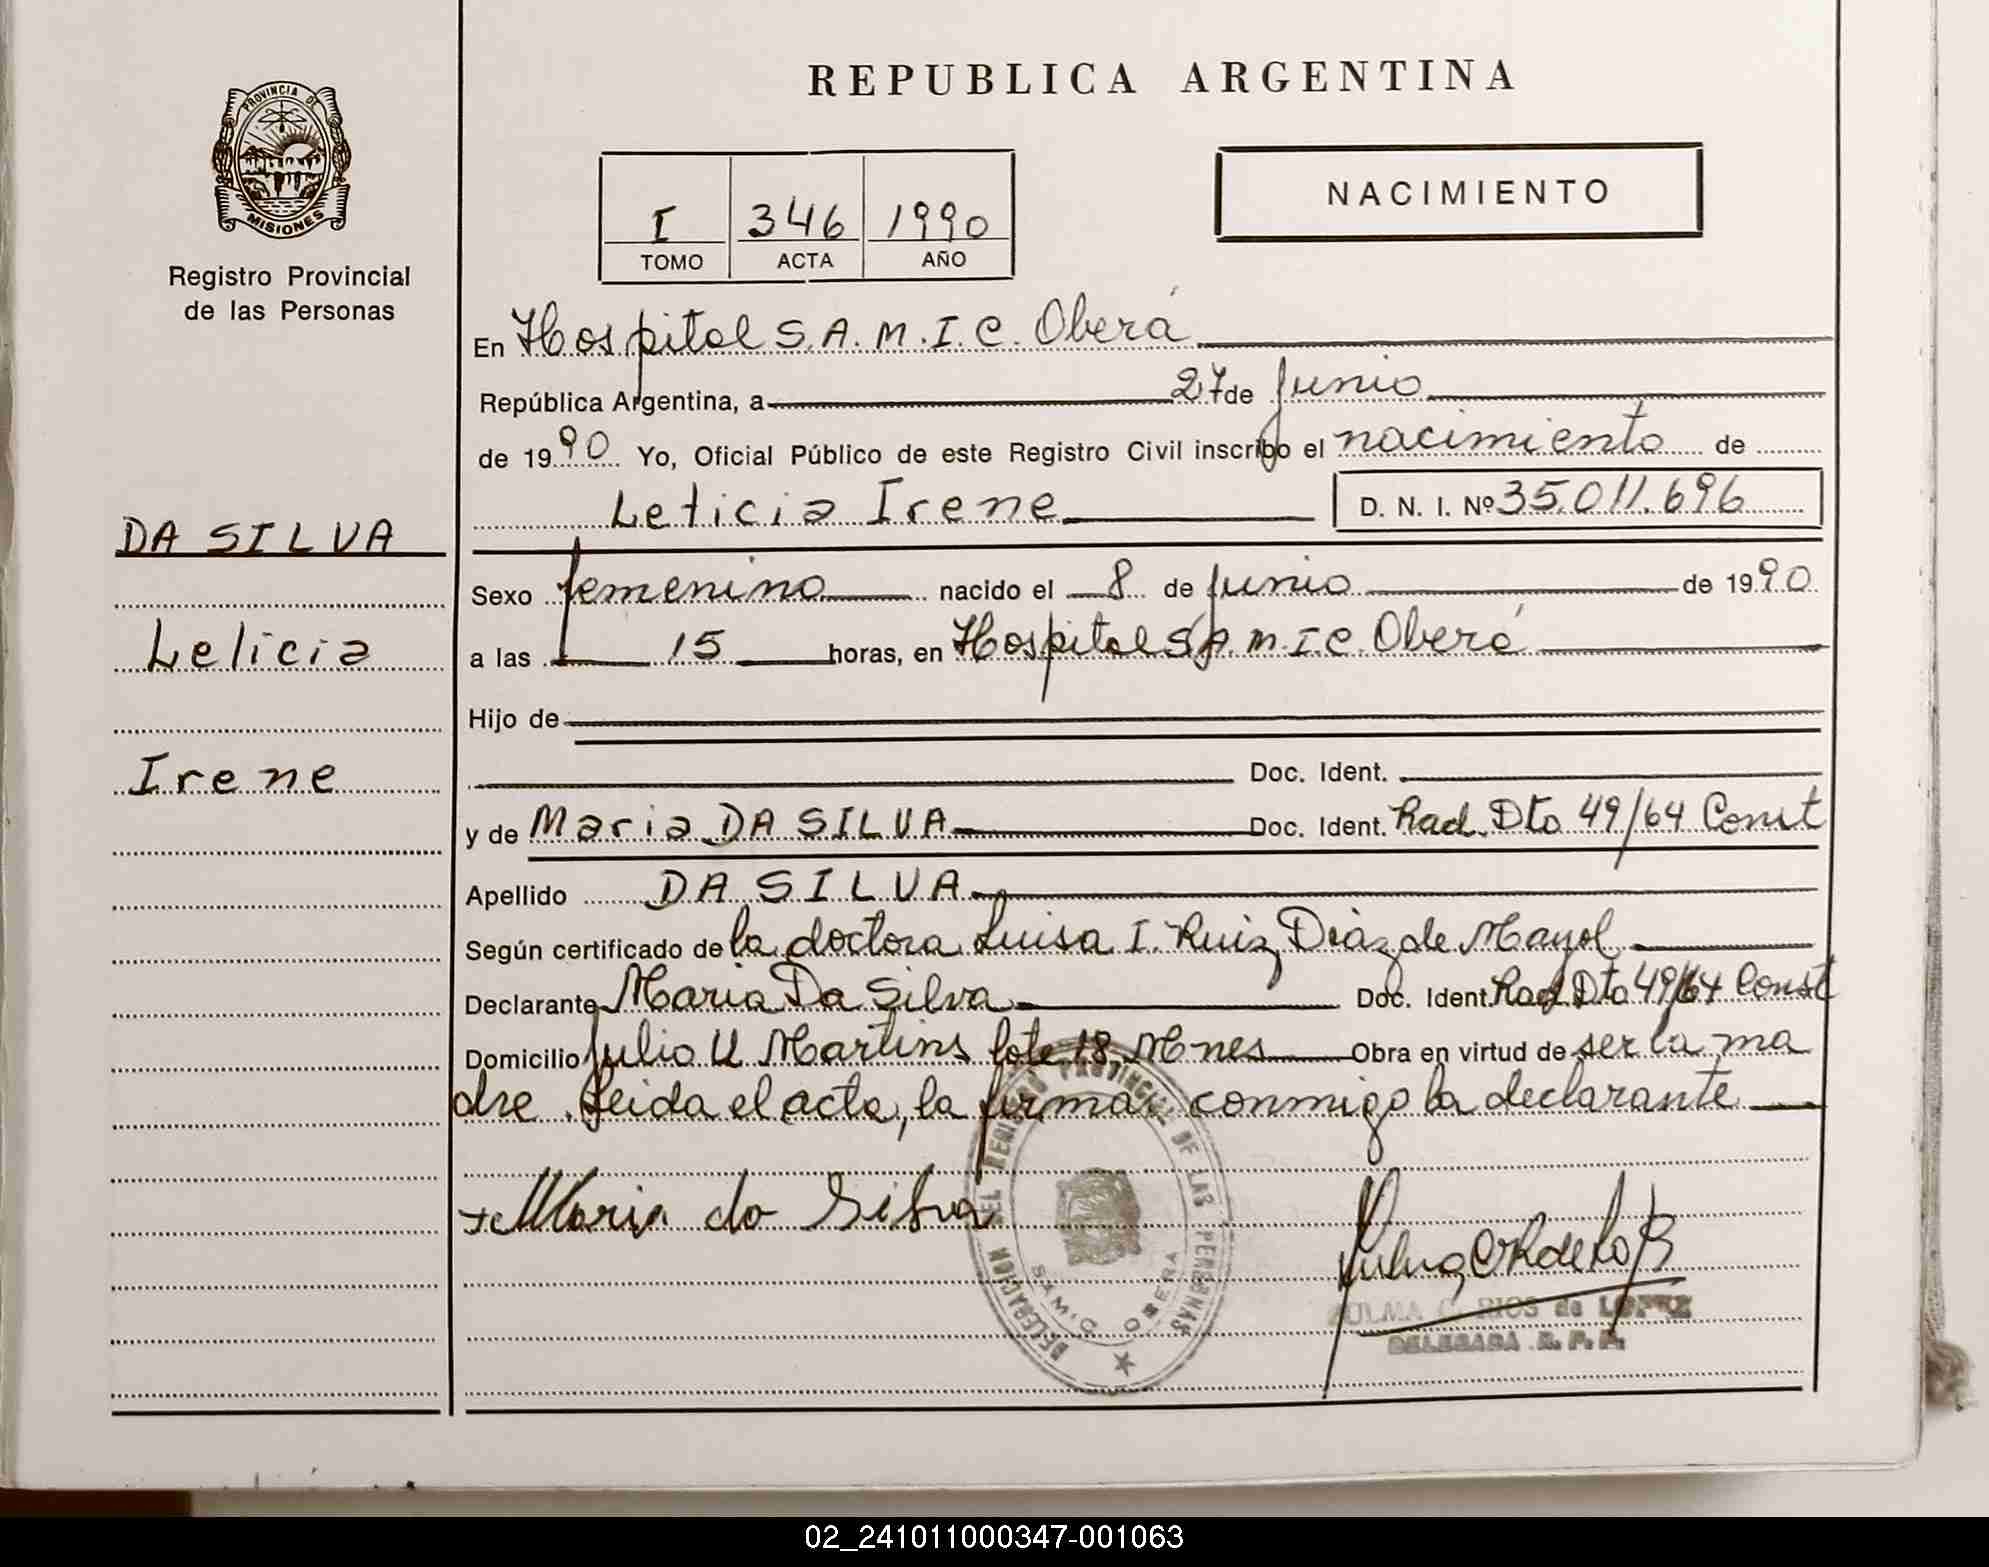 REPUBLICA ARGENTINA
PROVINCIA DE
MISIONES
Registro Provincial
de las Personas
I 346 1990
TOMO ACTA AÑO
NACIMIENTO
En Hospital S.A.M.I.C. Oberá
República Argentina, a 27 de Junio
de 1990 Yo, Oficial Público de este Registro Civil inscribo el nacimiento de
Leticia Irene D. N. I. Nº 35.011.696
DA SILVA
Leticia
Irene
Sexo femenino nacido el 8 de Junio de 1990
a las 15 horas, en Hospital S.A.M.I.C. Oberá
Hijo de
Doc. Ident.
y de Maria DA SILVA Doc. Ident. Rad. Dto 49/64 Const
Apellido DA SILVA
Según certificado de la doctora Luisa I. Ruiz Diaz de Mayol
Declarante Maria Da Silva Doc. Ident. Rad Dto 49/64 Const
Domicilio Julio U Martins lote 18 Mnes Obra en virtud de ser la ma
dre. Leida el acta, la firma conmigo la declarante
Maria da Silva
DELEGACION DEL REGISTRO PROVINCIAL DE LAS PERSONAS
S.A.M.I.C. OBERA
ZULMA C. RIOS de LOPEZ
DELEGADA R. P. P.
02_241011000347-001063